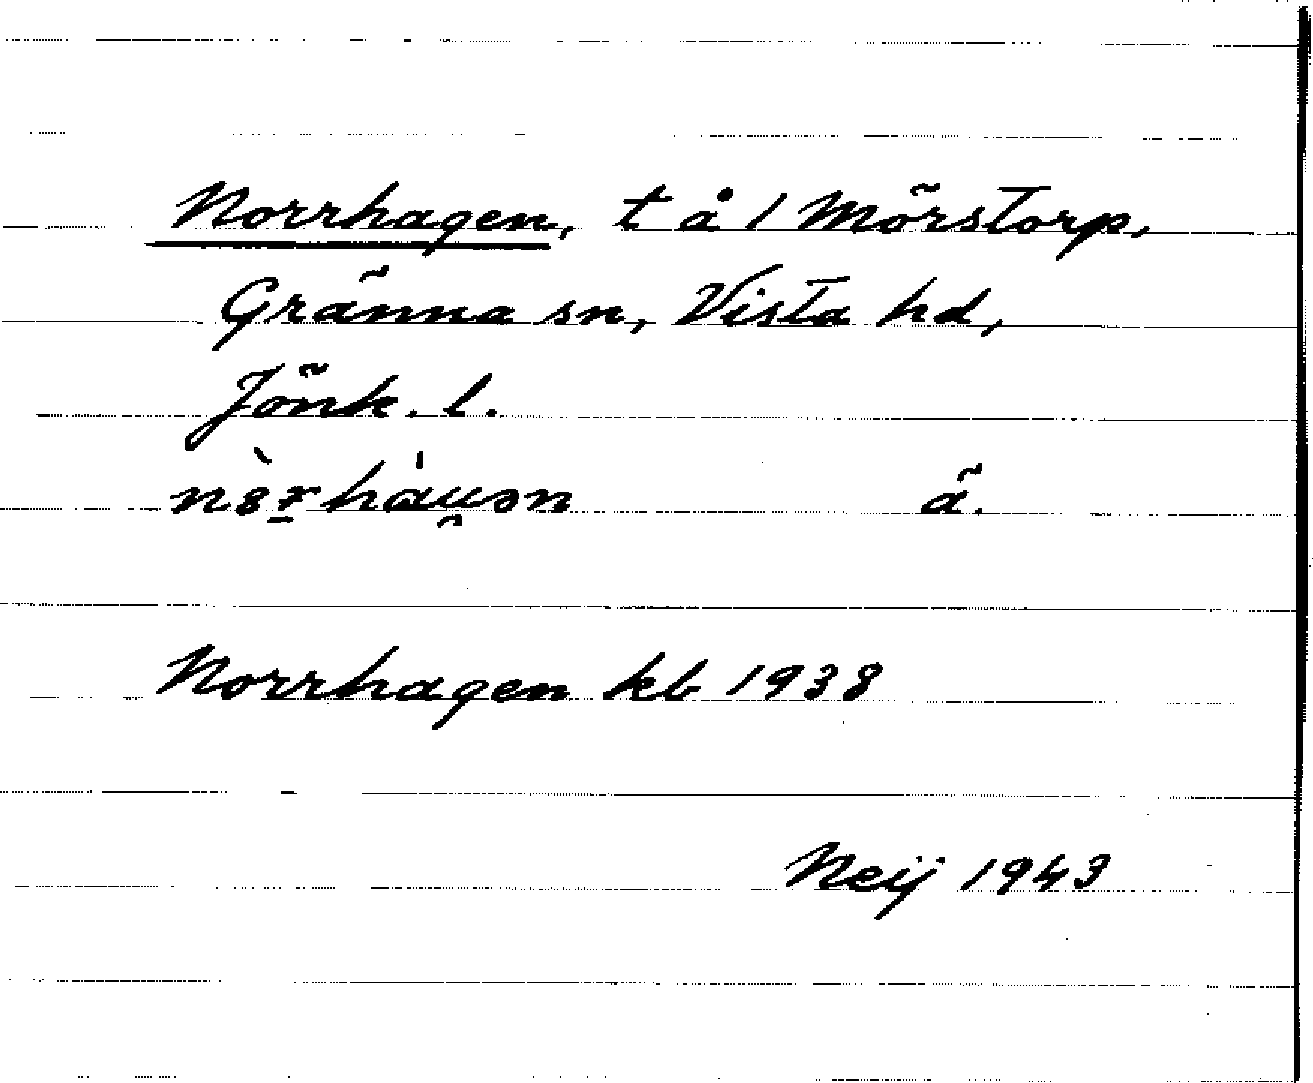 Norrhagen, t å 1 Mörstorp,
Gränna sn, Vista hd,
Jönk. l.
ä.
Norrhagen kb 1938
Neij 1943